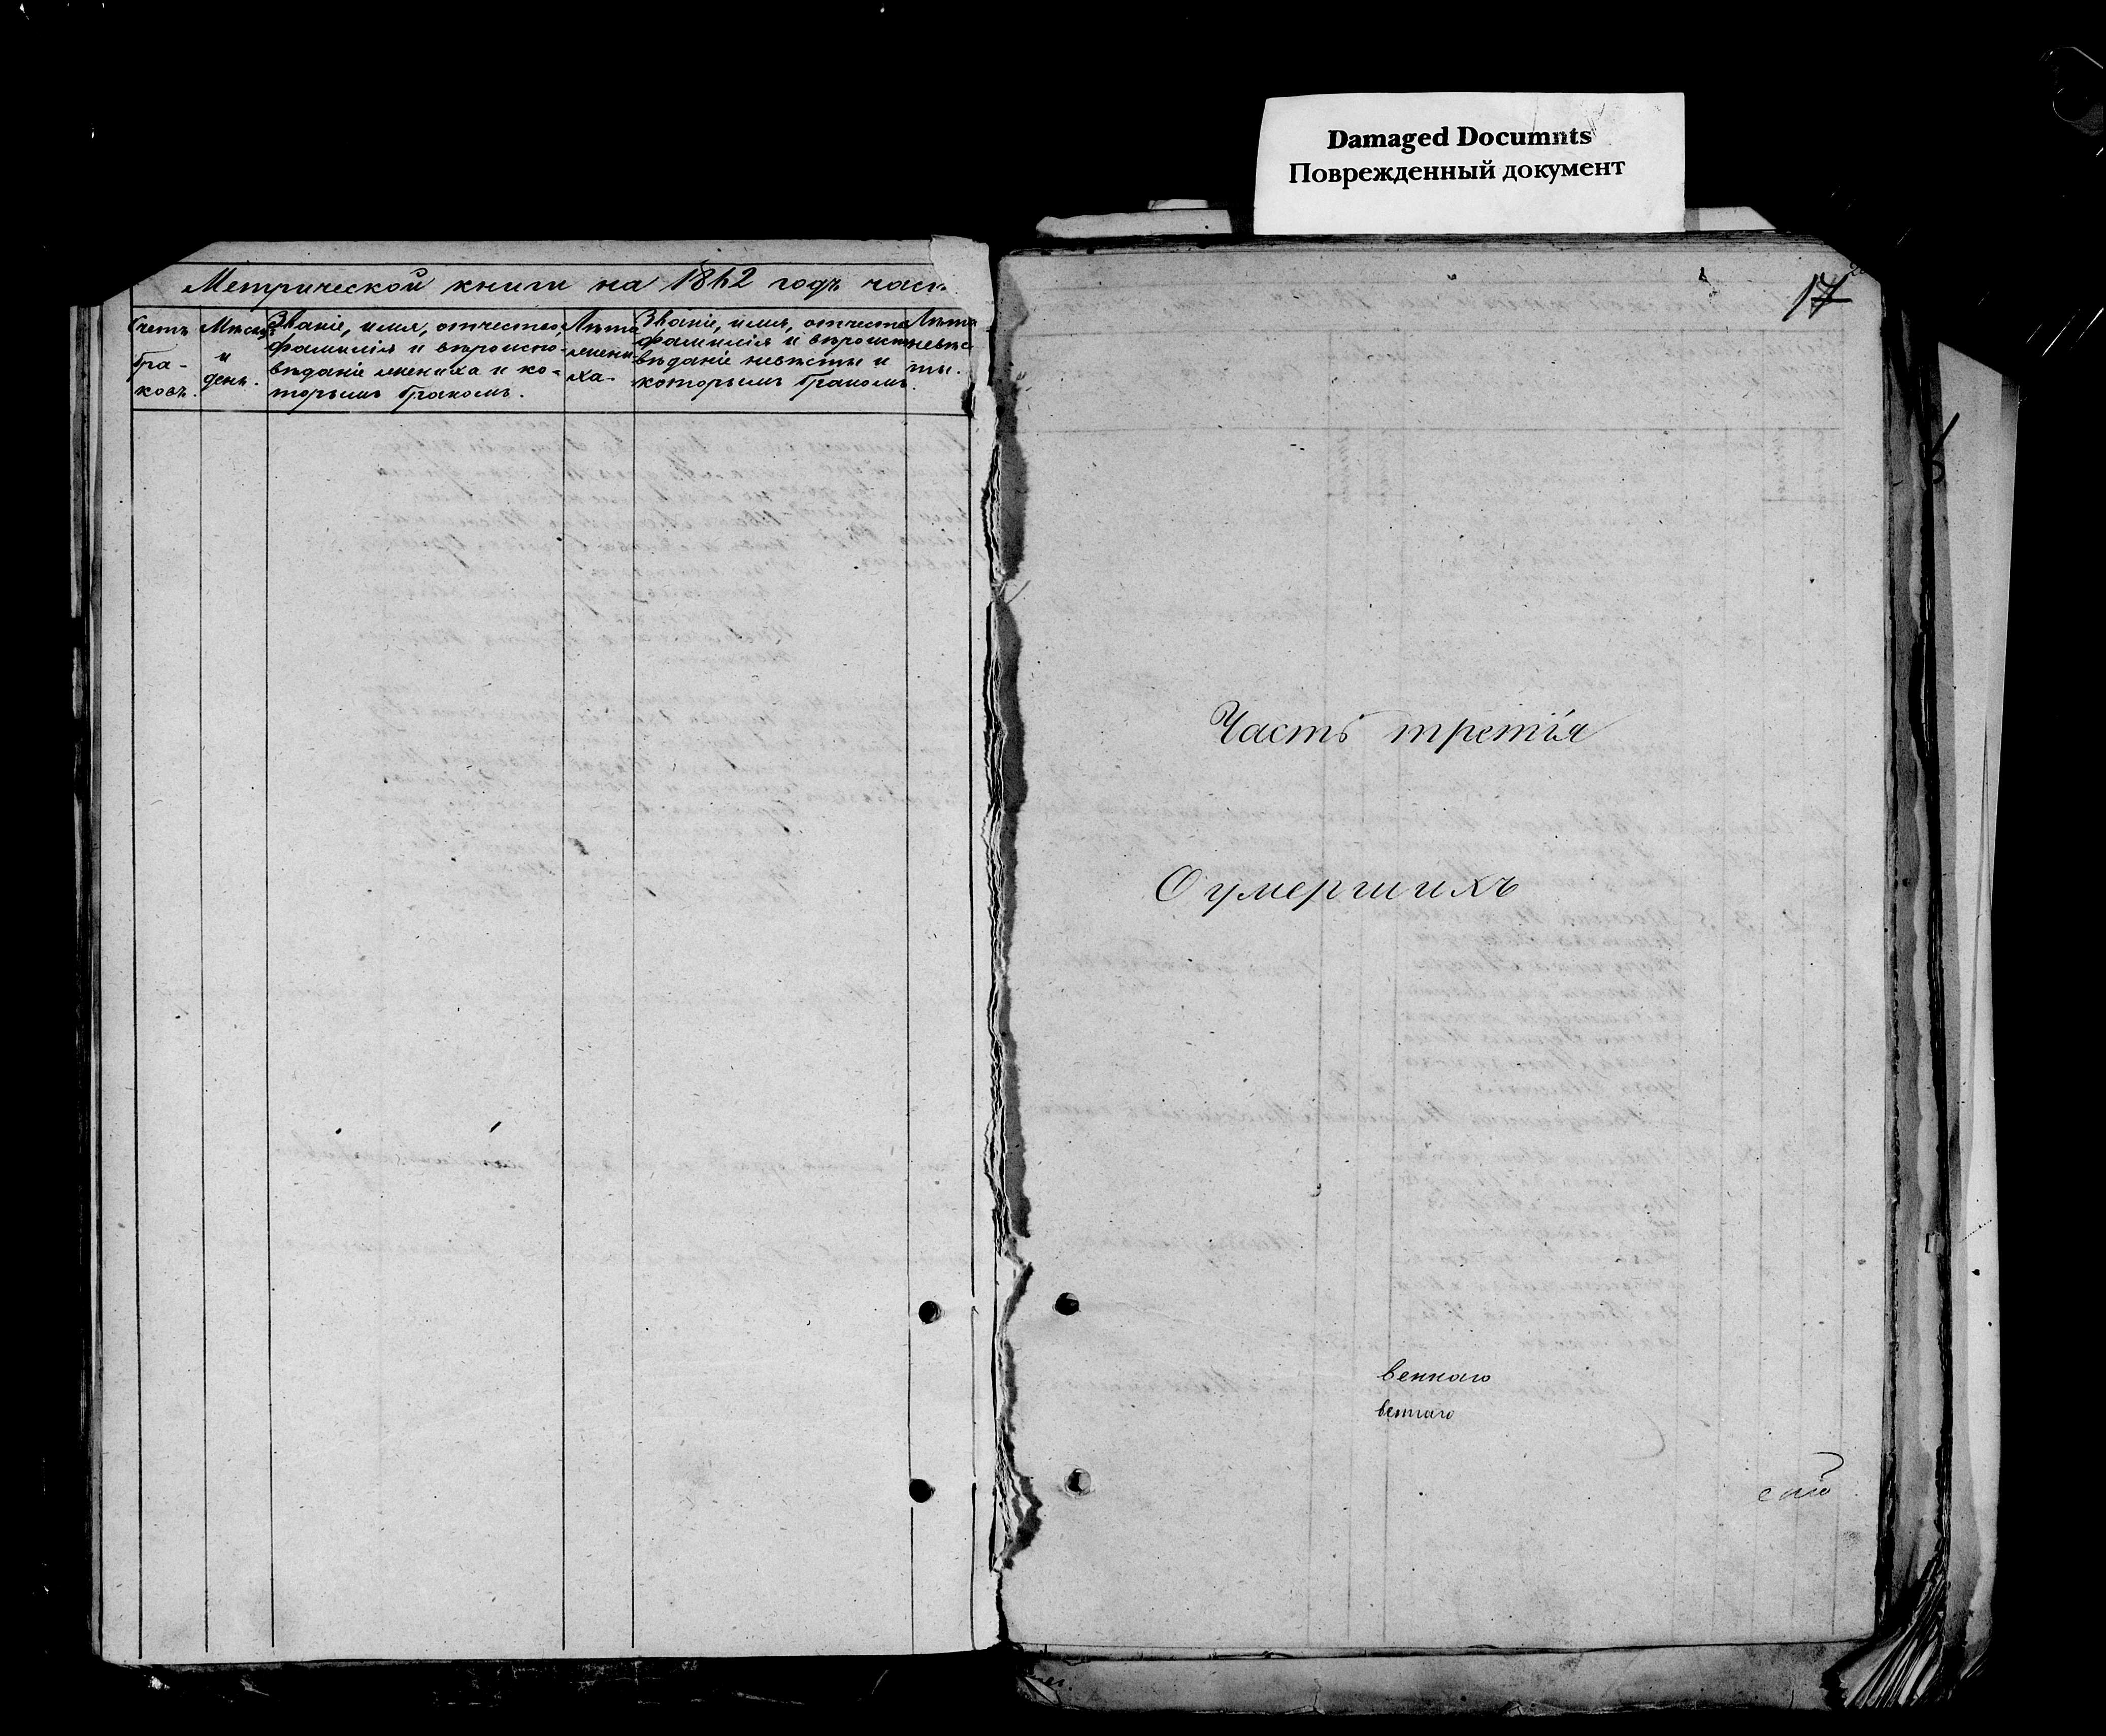 Damaged Documnts
Поврежденный документ
Метрической книги на 1862 годъ част
Счетъ бра- ковъ.
Мѣсяцъ и день.
Званіе, имя, отчество,
фамилія и вѣроиспо-
вѣданіе жениха и ко-
торымъ бракомъ.
Лѣта
жени-
ха.
Званіе, имя, отчество
фамилія и вѣроиспо
вѣданіе невѣсты и
которымъ бракомъ.
Лѣта
невѣс
ты.
17
Часть третія
О умершихъ
веннаго
веннаго